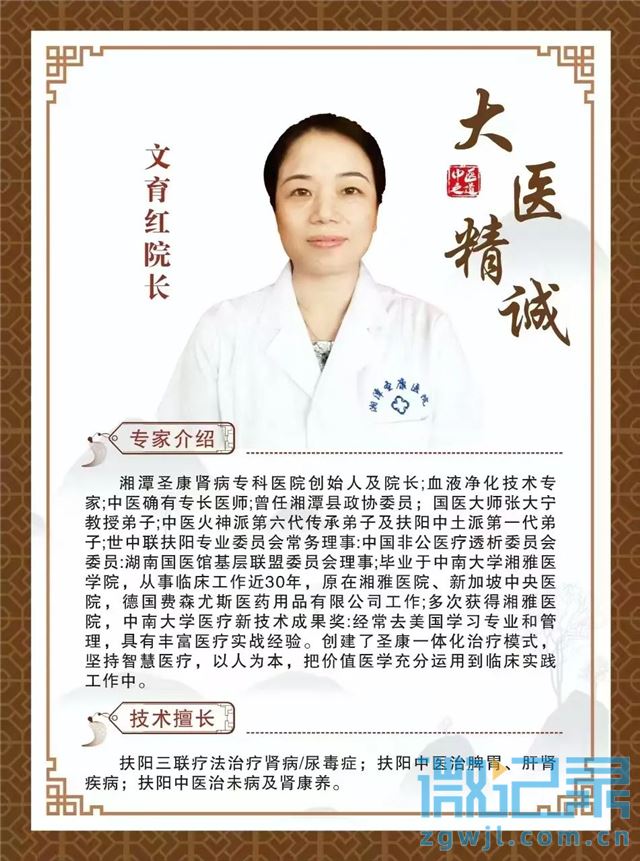 大医精诚
中医之道
文育红院长
湘潭圣康医院
专家介绍
湘潭圣康肾病专科医院创始人及院长;血液净化技术专
家;中医确有专长医师;曾任湘潭县政协委员；国医大师张大宁
教授弟子;中医火神派第六代传承弟子及扶阳中土派第一代弟
子;世中联扶阳专业委员会常务理事:中国非公医疗透析委员会
委员:湖南国医馆基层联盟委员会理事;毕业于中南大学湘雅医
学院，从事临床工作近30年，原在湘雅医院、新加坡中央医
院，德国费森尤斯医药用品有限公司工作;多次获得湘雅医
院，中南大学医疗新技术成果奖:经常去美国学习专业和管
理，具有丰富医疗实战经验。创建了圣康一体化治疗模式，
坚持智慧医疗，以人为本，把价值医学充分运用到临床实践
工作中。
技术擅长
扶阳三联疗法治疗肾病/尿毒症；扶阳中医治脾胃、肝肾
疾病；扶阳中医治未病及肾康养。
微记录
zgwjl.com.cn